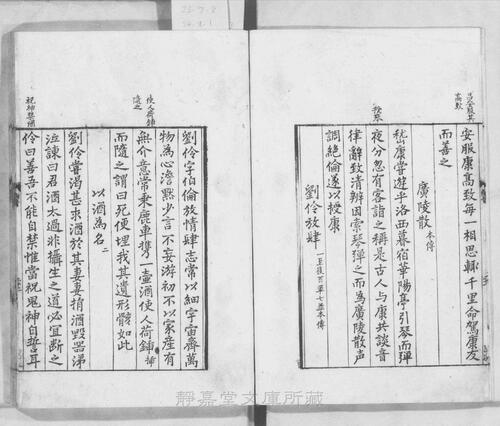 安服康髙致每一相思輙千里命駕康友
而善之
廣陵散 本傳
嵆康甞遊乎洛西暮宿華陽亭引琴而弾
夜分忽有客詣之稱是古人与康共談音
律辭致清辨因索琴弾之而為廣陵散声
調絶倫遂以授康
劉伶放肆
劉伶字伯倫放情肆志常以細宇宙齊萬
物為心澹黙少言不妄游初不以家産有
無介意常乗鹿車携一壷酒使人荷鍤
而随之謂曰死便埋我其遺形骸如此
以酒為名 二
劉伶甞渇甚求酒於其妻妻捐酒毁器涕
泣諫曰君酒太過非攝生之道必宜断之
伶曰善吾不能自禁惟當祝鬼神自誓耳
使人荷鍤
随之
静嘉堂文庫所蔵